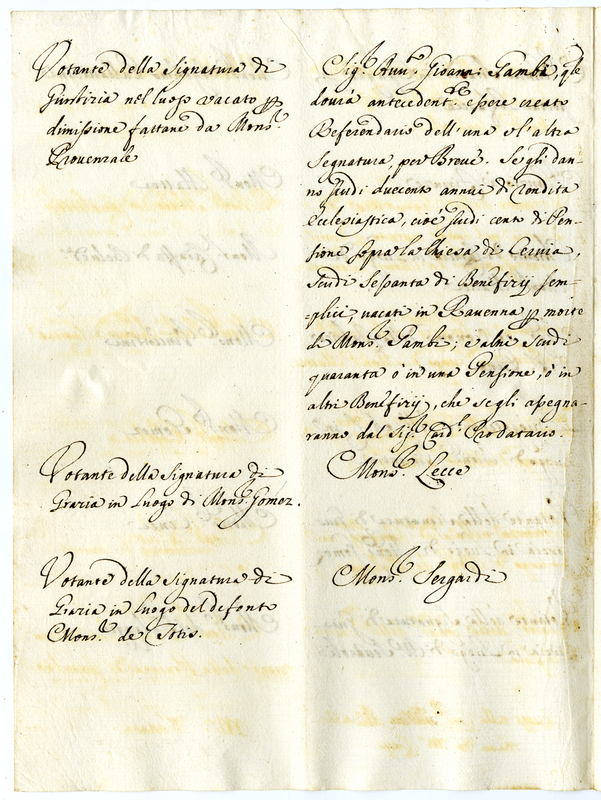 Votante della Signatura di
Giustizia nel luogo vacato p
dimissione fattane da Mons.r
Provenzale
Sig.r Avv.o Gioann: Gamba, qle
dovrà antecedent.e essere creato
Referendario dell'una e l'altra
Segnatura, per Breve. Se gli dan-
no scudi duecento annui di rendita
Ecclesiastica, cioè scudi cento di Pen-
sione sopra la Chiesa di Cervia,
scudi sessanta di Beneficij sem-
-plici vacati in Ravenna p morte
di Mons.r Gambi; e altri scudi
quaranta ò in una Pensione, ò in
altri Beneficij, che se gli assegna-
ranno dal Sig.r Card.l Prodatario.
Votante della Signatura di
Grazia in luogo di Mons.r Gomez.
Mons.r Lecce
Votante della Signatura di
Grazia in luogo del defonto
Mons.r de Totis.
Mons.r Sergardi